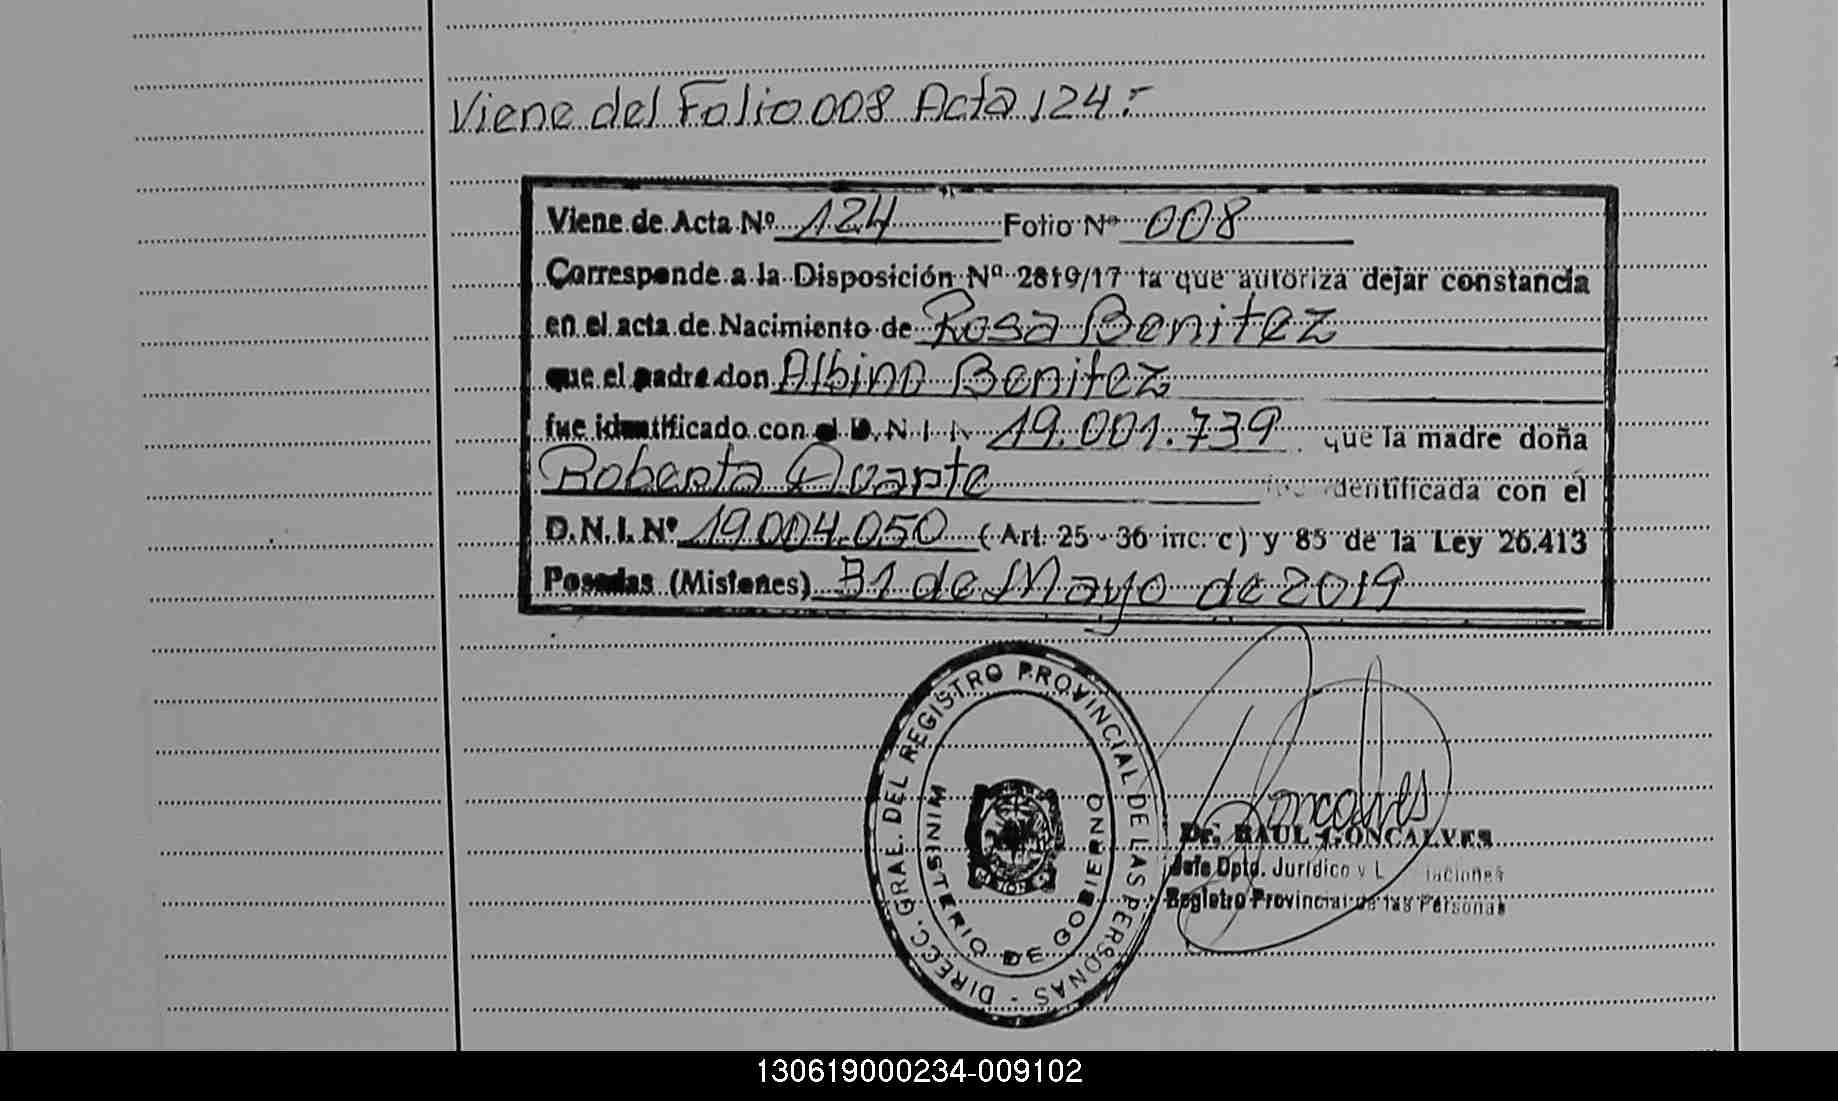 Viene del Folio 008 Acta 124.-
Viene de Acta Nº 124 Folio Nº 008
Corresponde a la Disposición Nº 2819/17 la que autoriza dejar constancia
en el acta de Nacimiento de Rosa Benitez
que el padre don Albino Benitez
fue identificado con el D.N.I. N 19.001.739 que la madre doña
Roberta Duarte identificada con el
D.N.I. Nº 19.004.050 (Art. 25 - 36 inc. c) y 85 de la Ley 26.413
Posadas (Misiones) 31 de Mayo de 2019
DIRECC. GRAL. DEL REGISTRO PROVINCIAL DE LAS PERSONAS -
MINISTERIO DE GOBIERNO
Goncalves
Dr. RAUL GONCALVES
Jefe Dpto. Jurídico y
Registro Provincial de las Personas
130619000234-009102